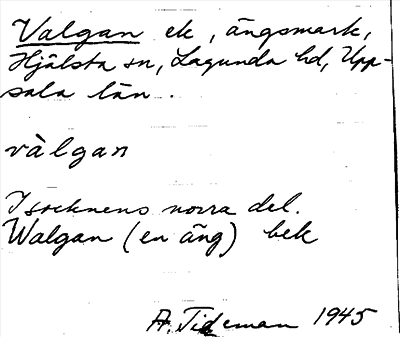 Valgan ek, ängsmark,
Hjälsta sn, Lagunda hd, Upp-
sala län.
vàlgan
I socknens norra del.
Walgan (en äng) bek
A. Tideman 1945